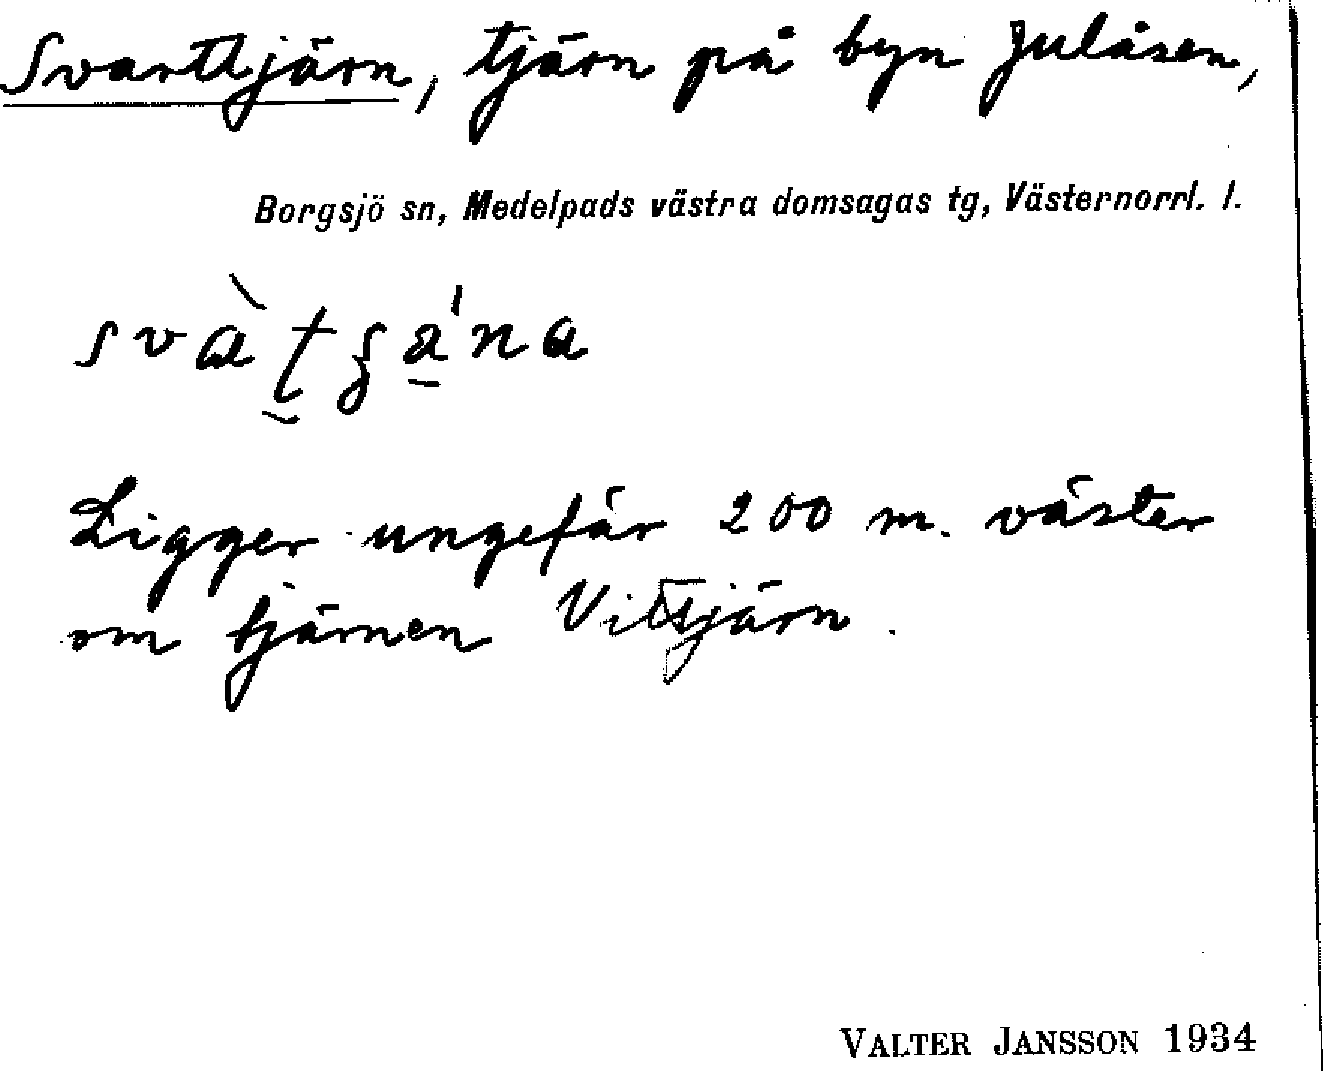 Svarttjärn, tjärn på byn Julåsen,
Borgsjö sn, Medelpads västra domsagas tg, Västernorrl. l.
Ligger ungefär 200 m. väster
om tjärnen Vittjärn.
VALTER JANSSON 1934